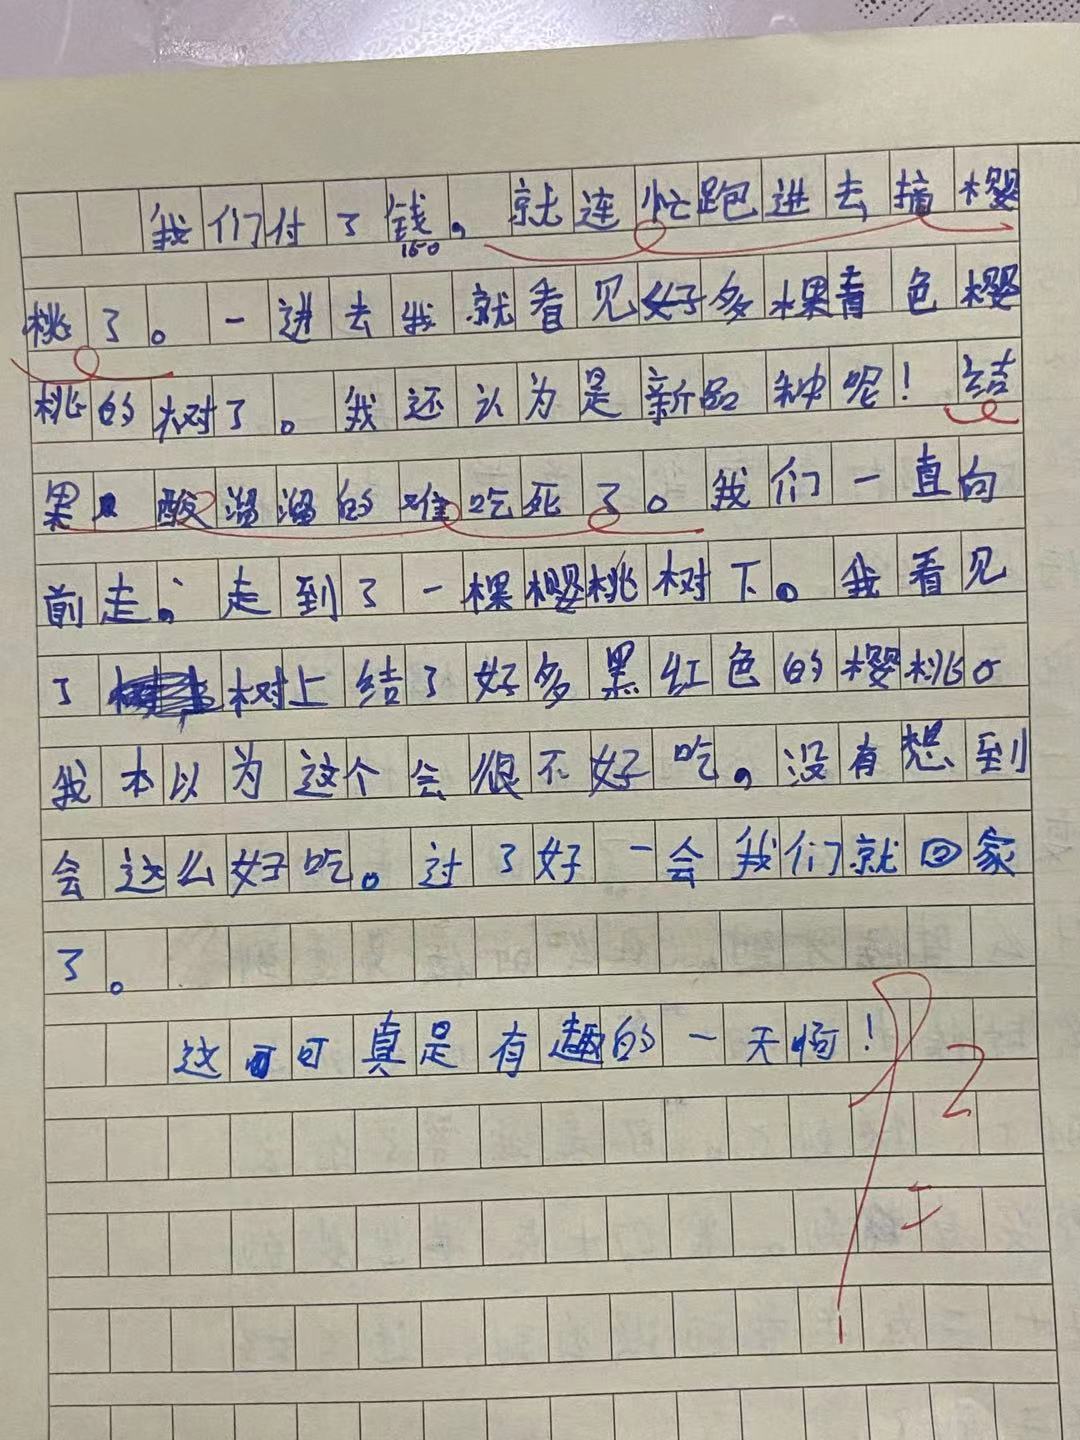 我们付了钱。就连忙跑进去摘樱
150
桃了。一进去我就看见好多棵青色樱
桃的树了。我还认为是新品种呢！结
果酸溜溜的难吃死了。我们一直向
前走。走到了一棵樱桃树下。我看见
了树上结了好多黑红色的樱桃。
我本以为这个会很不好吃。没有想到
会这么好吃。过了好一会我们就回家
了。
这可真是有趣的一天啊！